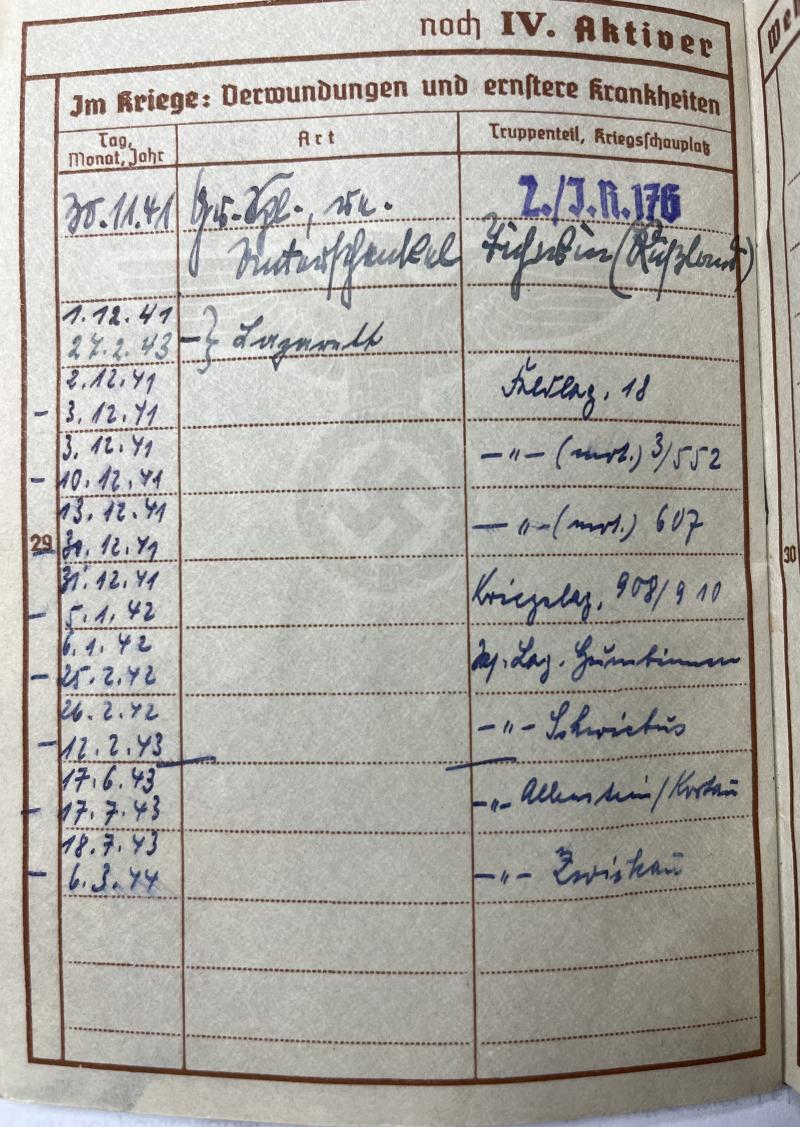 noch IV. Aktiver
Im Kriege: Verwundungen und ernstere Krankheiten
Tag, Monat, Jahr
Art
Truppenteil, Kriegsschauplatz
30.11.41 Gr.-Spl., re. 2./J.R.176
Unterschenkel Tichwin (Rußland)
1.12.41
27.2.43 -} Lazarett
2.12.41
- 3.12.41 Feldlaz. 18
3.12.41
- 10.12.41 -"- (mot.) 3/552
13.12.41
29
- 30.12.41 -"- (mot.) 607
31.12.41
- 5.1.42 Kriegslaz. 908/910
6.1.42
- 25.2.42 Laz. Gumbinnen
26.2.42
- 12.2.43 -"-
17.6.43
- 17.7.43 -"- Allenstein/Kortau
18.7.43
- 6.3.44 -"- Zwickau
30